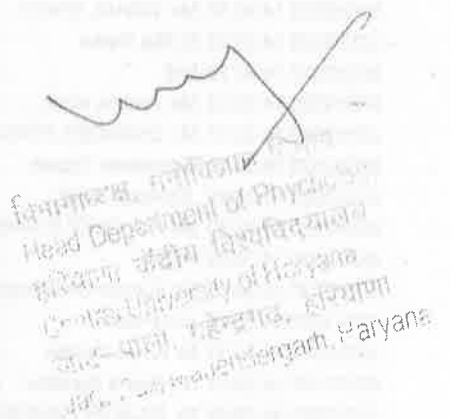 विभागाध्यक्ष, मनोविज्ञान विभाग
Head Department of Phychology
हरियाणा केंद्रीय विश्वविद्यालय
Central University of Haryana
जांट-पाली, महेन्द्रगढ़, हरियाणा
Mahendergarh, Haryana